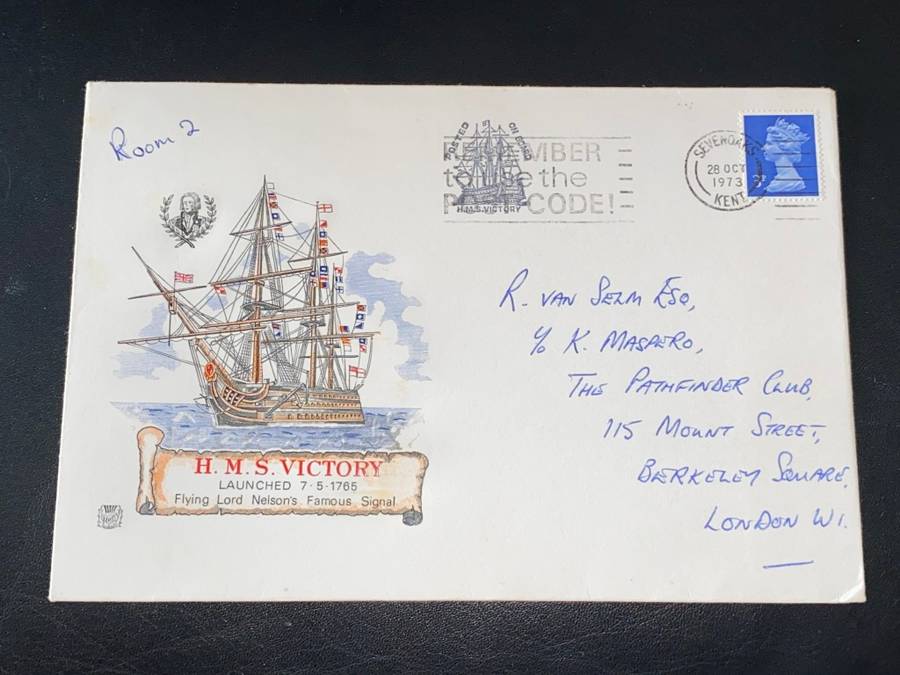 Room 2
POSTED ON BOARD
H.M.S. VICTORY
REMEMBER
to use the
POST CODE!
SEVENOAKS
28 OCT
1973
KENT
R. VAN SELM ESQ,
c/o K. MASPERO,
THE PATHFINDER CLUB,
115 MOUNT STREET,
BERKELEY SQUARE,
LONDON W1.
H. M. S. VICTORY
LAUNCHED 7·5·1765
Flying Lord Nelson's Famous Signal